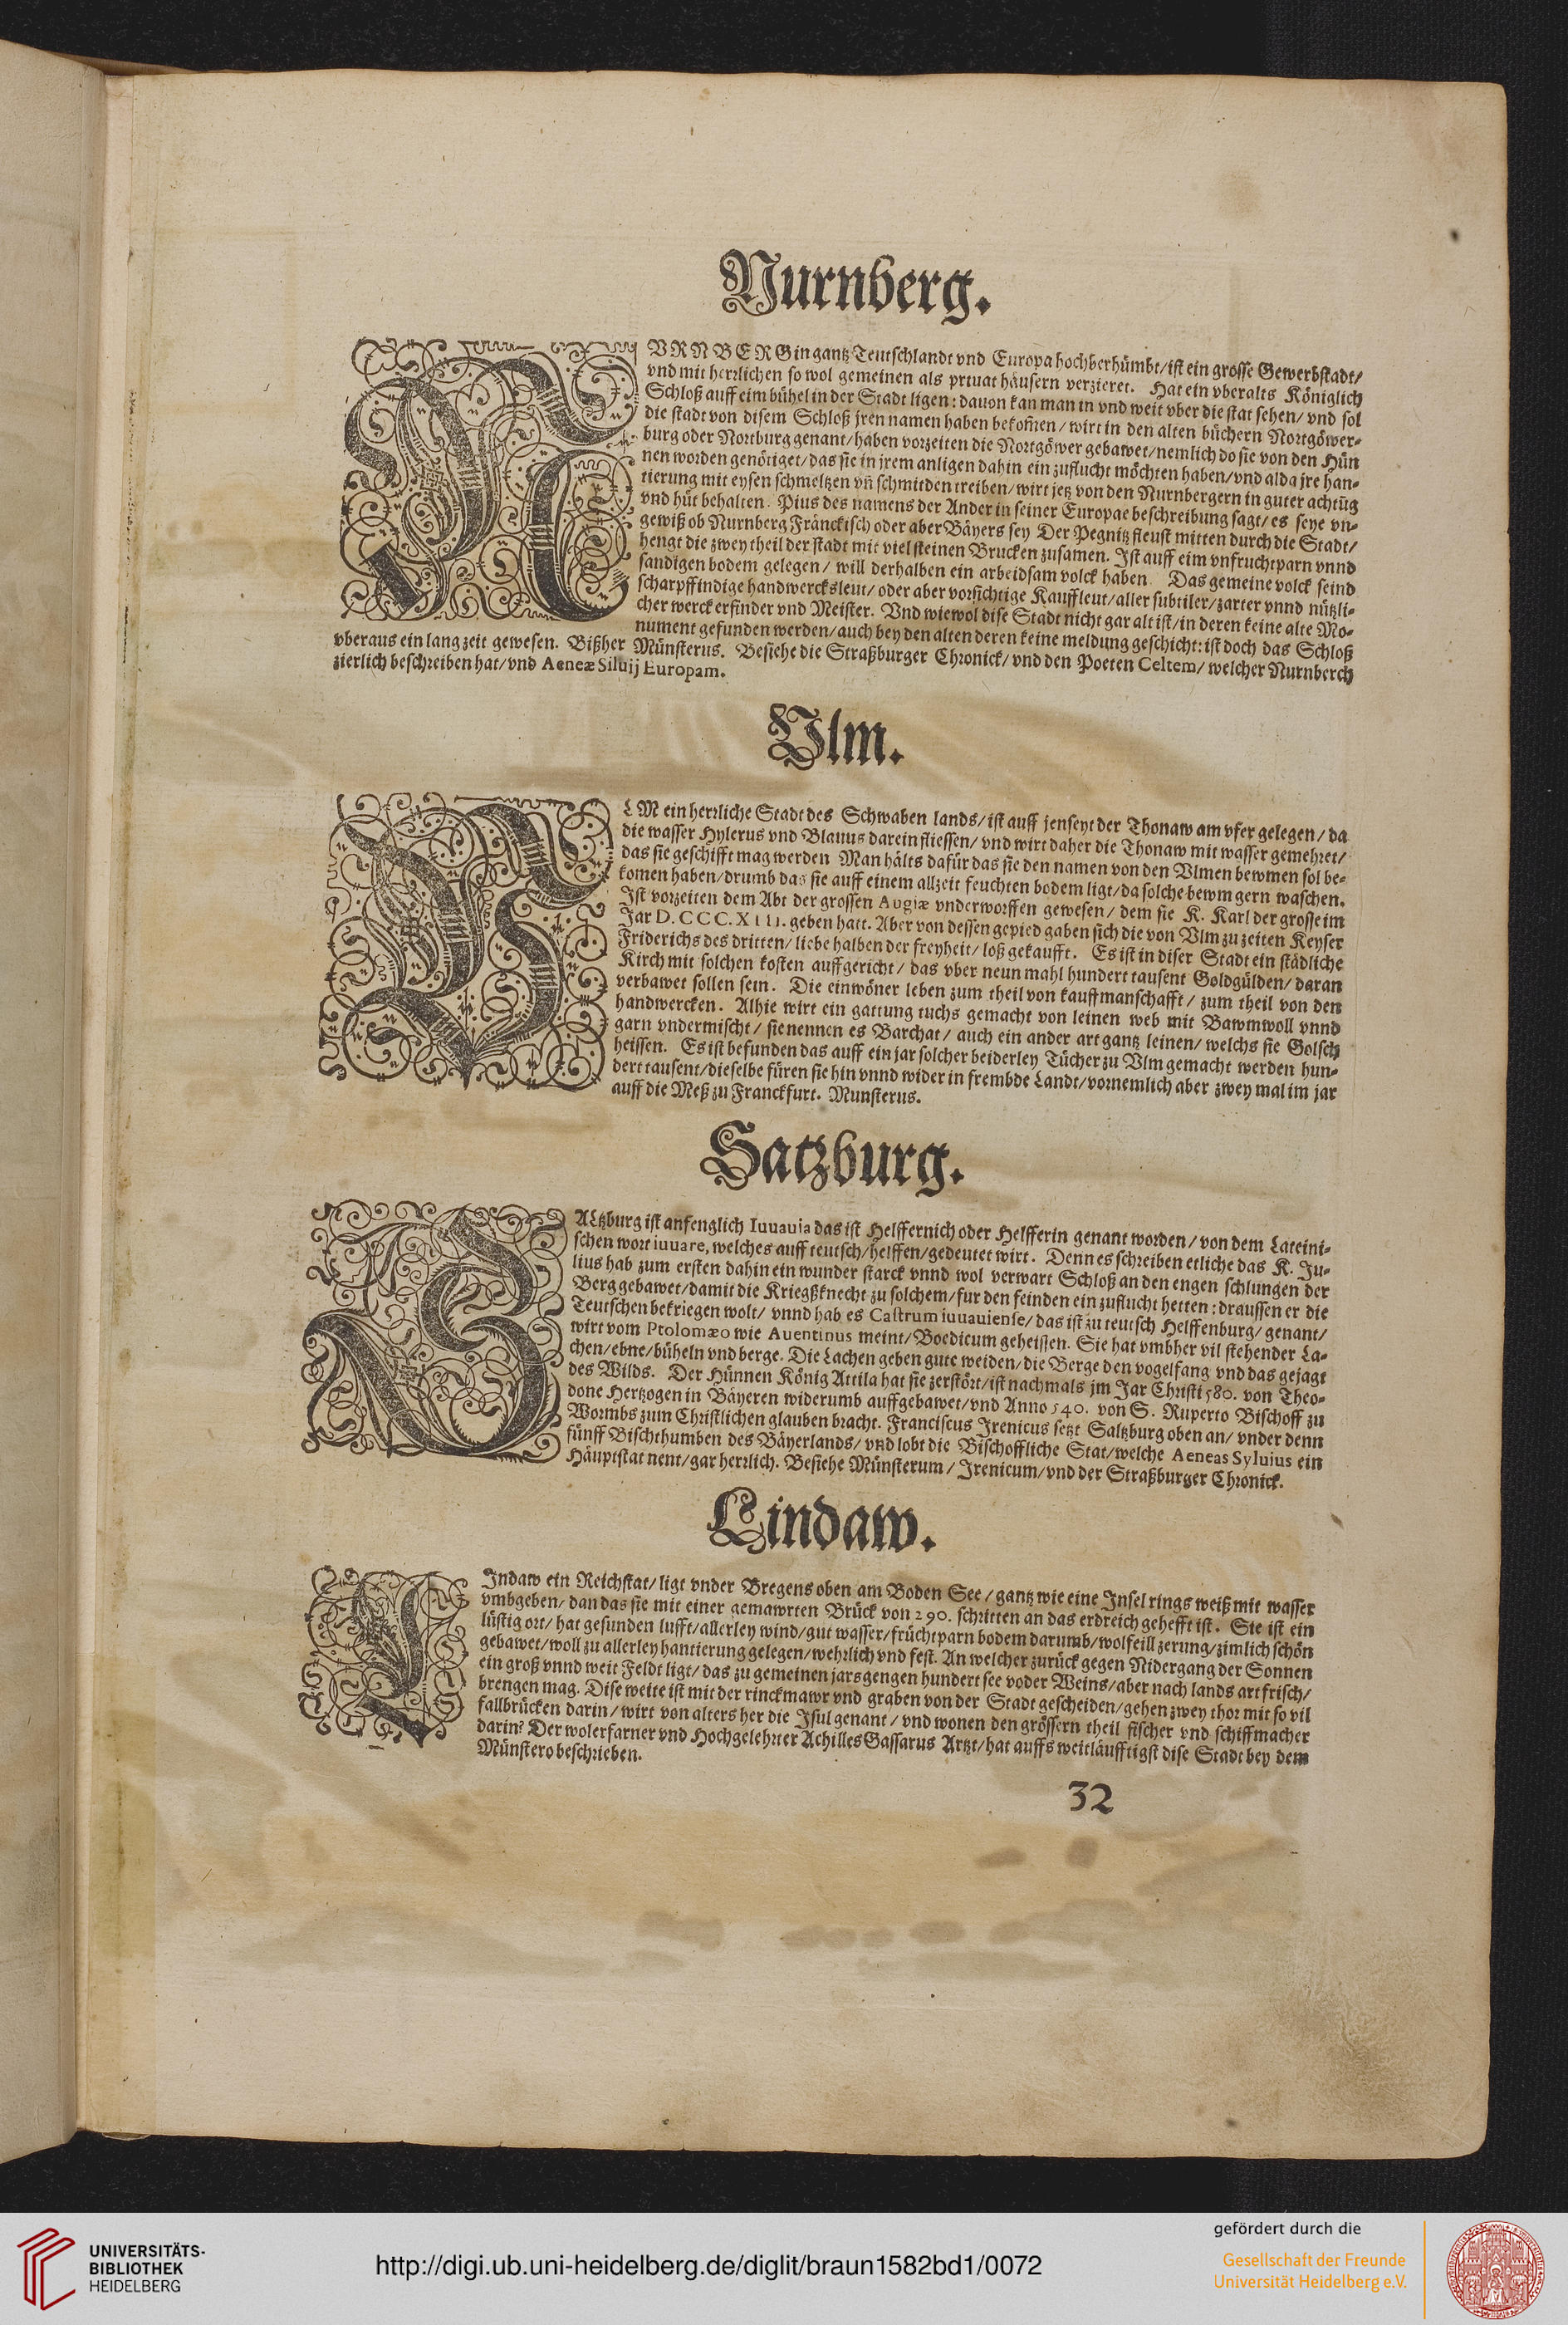 Nurnberg.
NVRNBERG in gantz Teutschlandt vnd Europa hochberhümbt/ ist ein grosse Gewerbstadt/
vnd mit herrlichen so wol gemeinen als priuat häusern verzieret. Hat ein vberalts Königlich
Schloß auff eim bühel in der Stadt ligen: dauon kan man in vnd weit vber die stat sehen/ vnd sol
die stadt von disem Schloß jren namen haben bekom̃en/ wirt in den alten büchern Nortgöwer-
burg oder Nortburg genant/ haben vorzeiten die Nortgöwer gebawet/ nemlich do sie von den Hün
nen worden genötiget/ das sie in jrem anligen dahin ein zuflucht möchten haben/ vnd alda jre han-
tierung mit eysen schmeltzen vñ schmitden treiben/ wirt jetz von den Nurnbergern in guter achtũg
vnd hůt behalten. Pius des namens der Ander in seiner Europae beschreibung sagt/ es seye vn-
gewiß ob Nurnberg Fränckisch oder aber Bäyers sey Der Pegnitz fleust mitten durch die Stadt/
hengt die zwey theil der stadt mit viel steinen Brucken zusamen. Ist auff eim vnfruchtparn vnnd
sandigen bodem gelegen/ will derhalben ein arbeidsam volck haben. Das gemeine volck seind
scharpffindige handwercksleut/ oder aber vorsichtige Kauffleut/ aller subtiler/ zarter vnnd nützli-
cher werck erfinder vnd Meister. Vnd wiewol dise Stadt nicht gar alt ist/ in deren keine alte Mo-
nument gefunden werden/ auch bey den alten deren keine meldung geschicht: ist doch das Schloß
vberaus ein lang zeit gewesen. Bißher Münsterus. Besiehe die Straßburger Chronick/ vnd den Poeten Celtem/ welcher Nurnberch
zierlich beschreiben hat/ vnd Aeneæ Siluij Europam.
Vlm.
VLM ein herrliche Stadt des Schwaben lands/ ist auff jenseyt der Thonaw am vfer gelegen/ da
die wasser Hylerus vnd Blauus darein fliessen/ vnd wirt daher die Thonaw mit wasser gemehret/
das sie geschifft mag werden Man hälts dafür das sie den namen von den Vlmen bewmen sol be-
komen haben/ drumb das sie auff einem allzeit feuchten bodem ligt/ da solche bewm gern waschen.
Ist vorzeiten dem Abt der grossen Augiæ vnderworffen gewesen/ dem sie K. Karl der grosse im
Jar D. CCC. XIII. geben hatt. Aber von dessen gepied gaben sich die von Vlm zu zeiten Keyser
Friderichs des dritten/ liebe halben der freyheit/ loß gekaufft. Es ist in diser Stadt ein städliche
Kirch mit solchen kosten auffgericht/ das vber neun mahl hundert tausent Goldgülden/ daran
verbawet sollen sein. Die einwöner leben zum theil von kauffmanschafft/ zum theil von den
handwercken. Alhie wirt ein gattung tuchs gemacht von leinen web mit Bawmwoll vnnd
garn vndermischt/ sie nennen es Barchat/ auch ein ander art gantz leinen/ welchs sie Golsch
heissen. Es ist befunden das auff ein jar solcher beiderley Tücher zu Vlm gemacht werden hun-
dert tausent/ dieselbe füren sie hin vnnd wider in frembde Landt/ vornemlich aber zwey mal im jar
auff die Meß zu Franckfurt. Munsterus.
Satzburg.
SALtzburg ist anfenglich Iuuauia das ist Helffernich oder Helfferin genant worden/ von dem Lateini-
schen wort iuuare, welches auff teutsch/ helffen/ gedeutet wirt. Denn es schreiben etliche das K. Ju-
lius hab zum ersten dahin ein wunder starck vnnd wol verwart Schloß an den engen schlungen der
Berg gebawet/ damit die Kriegßknecht zu solchem/ fur den feinden ein zuflucht hetten: draussen er die
Teutschen bekriegen wolt/ vnnd hab es Castrum iuuauiense/ das ist zu teutsch Helffenburg/ genant/
wirt vom Ptolomæo wie Auentinus meint/ Boedicum geheissen. Sie hat vmbher vil stehender La-
chen/ ebne/ büheln vnd berge. Die Lachen geben gute weiden/ die Berge den vogelfang vnd das gejagt
des Wilds. Der Hünnen König Attila hat sie zerstört/ ist nachmals jm Jar Christi 580. von Theo-
done Hertzogen in Bäyeren widerumb auffgebawet/ vnd Anno 540. von S. Ruperto Bischoff zu
Wormbs zum Christlichen glauben bracht. Franciscus Irenicus setzt Saltzburg oben an/ vnder denn
fünff Bischthumben des Bäyerlands/ vnd lobt die Bischoffliche Stat/ welche Aeneas Syluius ein
Häuptstat nent/ gar herrlich. Besiehe Münsterum/ Irenicum/ vnd der Straßburger Chronick.
Lindaw.
LIndaw ein Reichstat/ ligt vnder Bregens oben am Boden See/ gantz wie eine Insel rings weiß mit wasser
vmbgeben/ dan das sie mit einer gemawrten Brück von 290. schritten an das erdreich gehefft ist. Sie ist ein
lüstig ort/ hat gesunden lufft/ allerley wind/ gut wasser/ früchtparn bodem darumb/ wolfeill zerung/ zimlich schön
gebawet/ woll zu allerley hantierung gelegen/ wehrlich vnd fest. An welcher zurück gegen Nidergang der Sonnen
ein groß vnnd weit Feldt ligt/ das zu gemeinen jarsgengen hundert see voder Weins/ aber nach lands art frisch/
brengen mag. Dise weite ist mit der rinckmawr vnd graben von der Stadt gescheiden/ gehen zwey thor mit so vil
fallbrücken darin/ wirt von alters her die Isul genant/ vnd wonen den grössern theil fischer vnd schiffmacher
darin? Der wolerfarner vnd Hochgelehrter Achilles Gassarus Artzt/ hat auffs weitläufftigst dise Stadt bey dem
Münstero beschrieben.
32
UNIVERSITÄTS-
BIBLIOTHEK
HEIDELBERG
http://digi.ub.uni-heidelberg.de/diglit/braun1582bd1/0072
gefördert durch die
Gesellschaft der Freunde
Universität Heidelberg e.V.